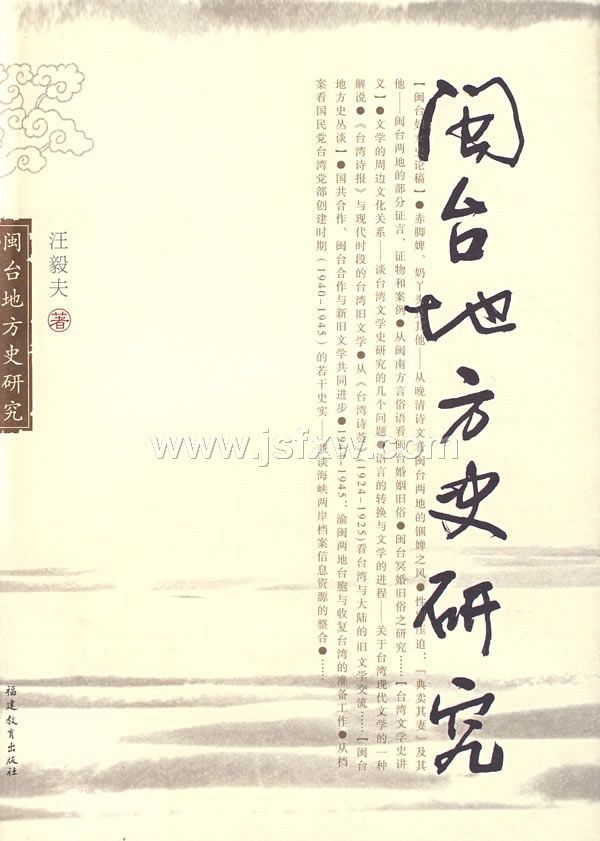 闽台地方史研究
【闽台 论稿】●赤脚婢、奶丫 其他——从晚清诗文看闽台两地的锢婢之风●性 压迫：「典卖其妻」及其
他——闽台两地的部分证言、证物和案例●从闽南方言俗语看闽台婚姻旧俗●闽台冥婚旧俗之研究……【台湾文学史讲
义】●文学的周边文化关系——谈台湾文学史研究的几个问题●语言的转换与文学的进程——关于台湾现代文学的一种
解说●《台湾诗报》与现代时段的台湾旧文学●从《台湾诗荟》(1924-1925)看台湾与大陆的旧文学交流……【闽台
地方史丛谈】●国共合作、闽台合作与新旧文学共同进步● -1945：渝闽两地台胞与收复台湾的准备工作●从档
案看国民党台湾党部创建时期(1940-1945)的若干史实——兼谈海峡两岸档案信息资源的整合●……
汪毅夫 著
闽台地方史研究
福建教育出版社
www.jsfxw.com